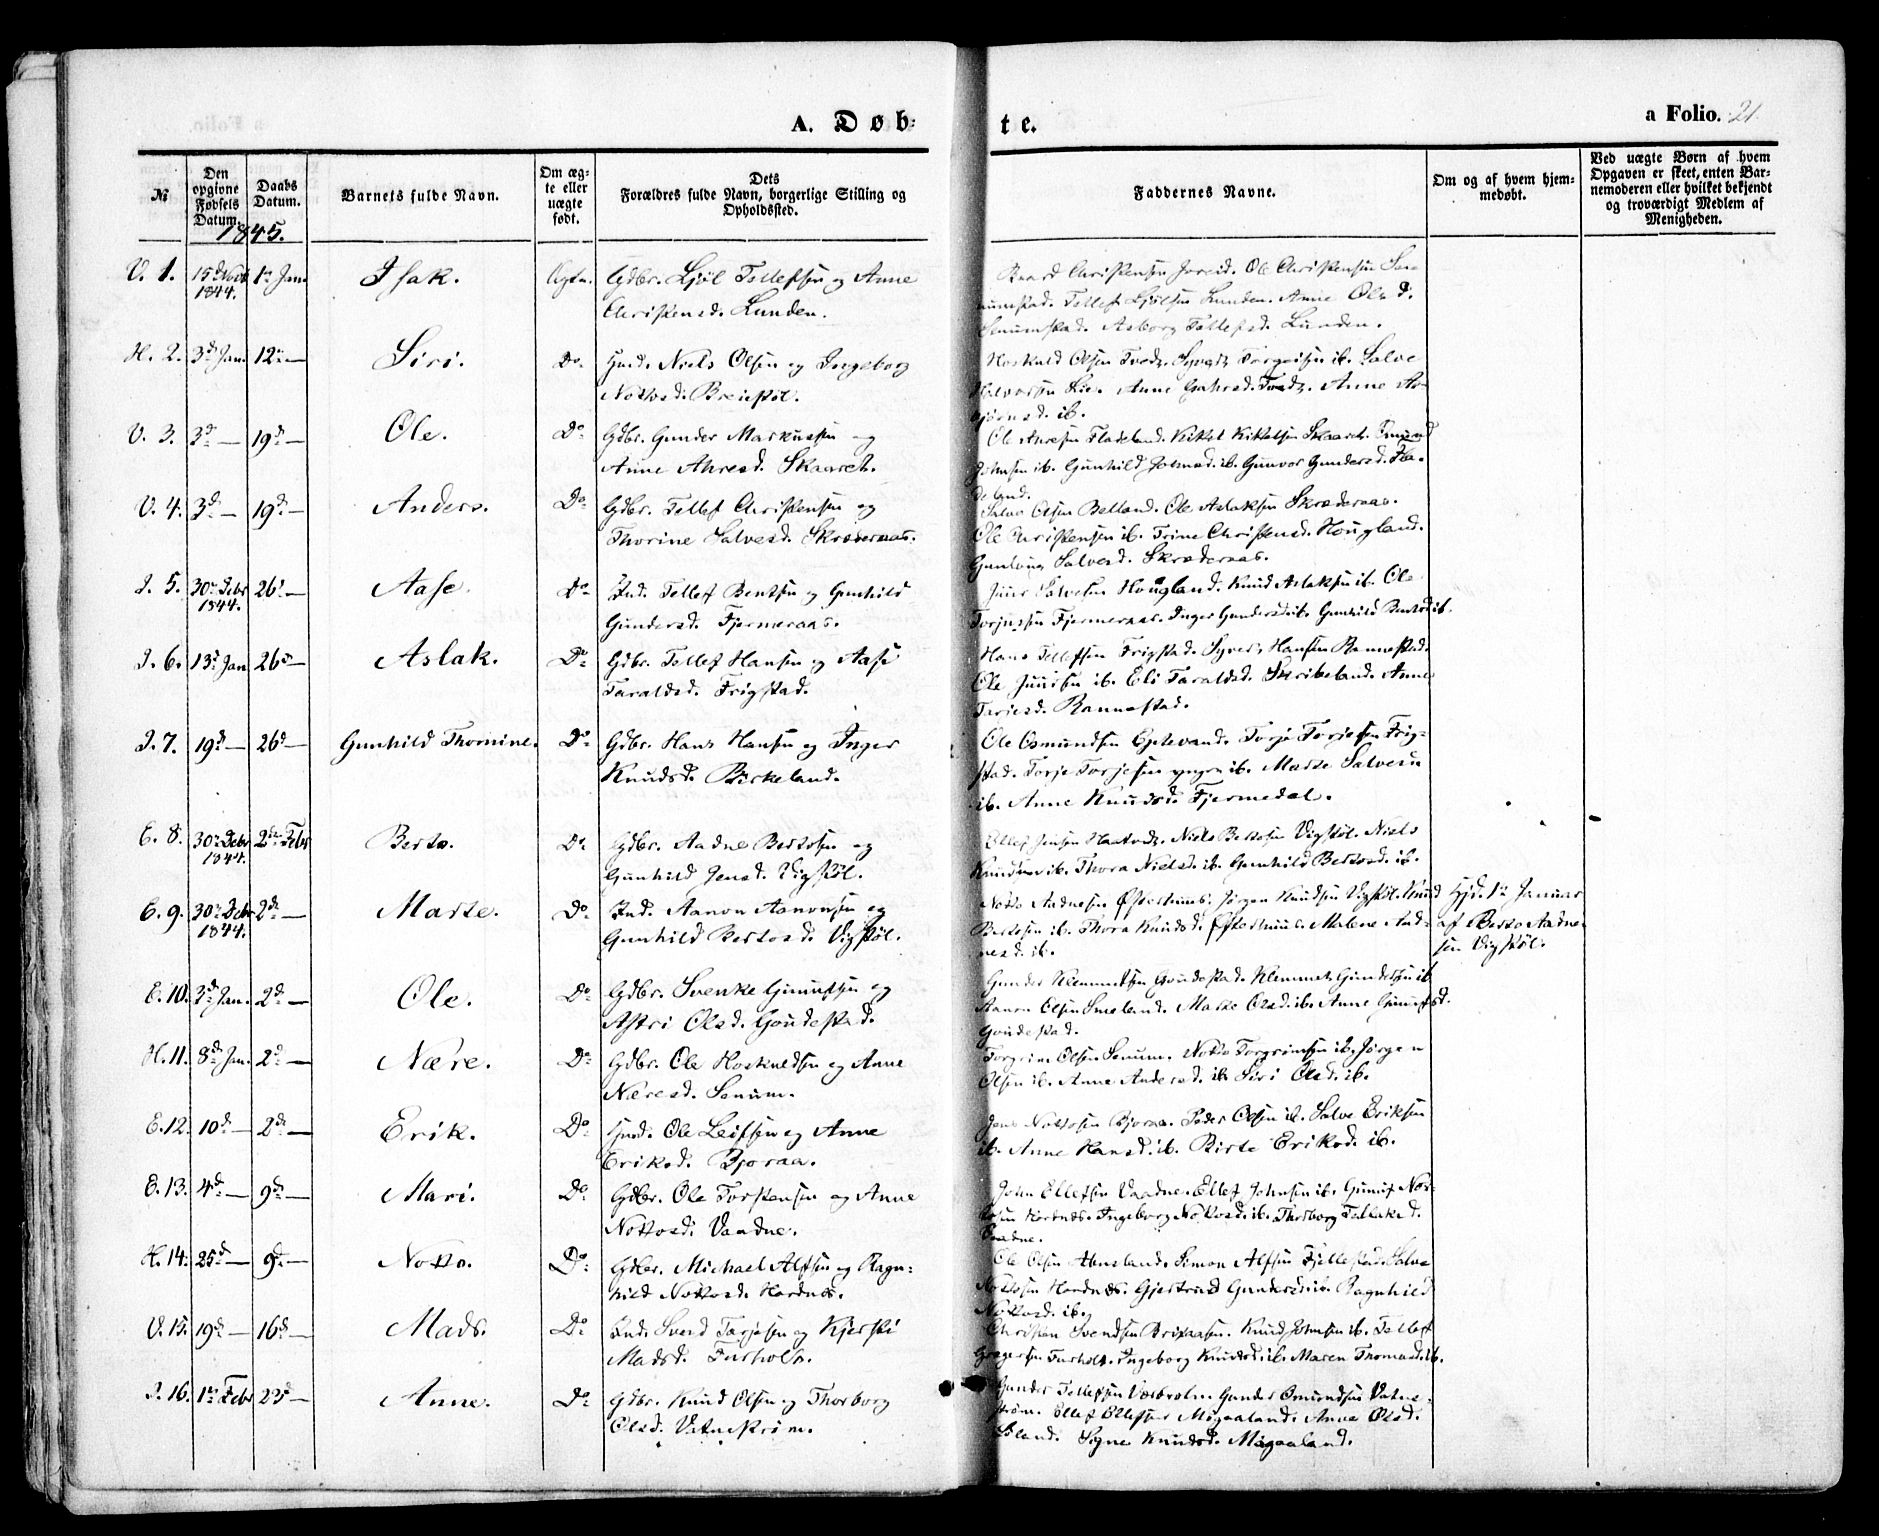 A. Døb-
te.
a Folio. 21.
№
Den opgivne Fødsels Datum.
Daabs Datum.
Barnets fulde Navn.
Om ægte eller uægte født.
Dets Forældres fulde Navn, borgerlige Stilling og Opholdssted.
Faddernes Navne.
Om og af hvem hjemmedøbt.
Ved uægte Børn af hvem Opgaven er skeet, enten Barnemoderen eller hvilket bekjendt og troværdigt Medlem af Menigheden.
1845.
V. 1. 15d Novb 1844. 1ste Jan. Isak. Ægte. Gdbr. Ljøl Tellefsen og Anne
Christensd. Lunden.
Baard Christensen Joreid. Ole Christensen Sen-
numstad. Tellef Ljølsen Lunden. Anne Olsd.
Senumstad. Asborg Tellefsd. Lunden.
H. 2. 3d Jan. 12te — Siri. Do. Hmd. Niels Olsen og Ingeborg
Nottosd. Breistøl.
Hoskuld Olsen Tvedt. Syvert Torgersen ib. Salve
Halvorsen Lie. Anne Tvedt. Anne As-
bjørnsd. ib.
V. 3. 3d — 19d — Ole. Do Gdbr. Gunder Markussen og
Anne Ahresd. Skaareh.
Ole Ahresen Fladeland. Kittel Kittelsen
Johnsen ib. Gunhild Johnsd. ib. Gunvor Gundersd. Fla-
deland.
V. 4. 3d — 19d — Anders. Do Gdbr. Tellef Christensen og
Thorine Salvesd. Skraderaas.
Salve Olsen Belland. Ole Aslaksen Skræderaas.
Ole Christensen ib. Trine Christensd. Hougland.
Gunlaug Salvesd. Skræderaas.
I. 5. 30te Debr 1844. 26d — Aase. Do Ind. Tellef Bentsen og Gunhild
Gundersd. Fjermeraas.
Juur Salvesen Hougland. Knud Aslaksen ib. Ole
Torjussen Fjermeraas. Inger Gundersd. ib. Gunhild Bentsd. ib.
I. 6. 13d Jan 26d — Aslak. Do Gdbr. Tellef Hansen og Aase
Taraldsd. Frigstad.
Hans Tellefsen Frigstad. Syvert Hansen Rannestad.
Ole Juursen ib. Eli Taraldsd. Skribeland. Anne
Tarjesd. Rannestad.
I. 7. 19d — 26d — Gunhild Thomine. Do Gdbr. Hans Hansen og Inger
Knudsd. Birkeland.
Ole Osmundsen Eptevand. Torje Torjesen Frig-
stad. Torje Torjesen yngre ib. Marte Salvesd.
ib. Anne Knudsd. Fjermedal.
E. 8. 30te Debr 1844. 2den Febr Berto. Do Gdbr. Aadne Bertosen og
Gunhild Jensd. Vigstøl.
Ellef Jensen Niels Bertosen Vigstøl. Niels
Knudsen ib. Thora Nielsd. ib. Gunhild Bertosd. ib.
E. 9. 30te Debr 1844. 2de — Marte. Do Ind. Aanon Aanonsen og
Gunhild Bertosd. Vigstøl.
Notto Aadnesen Østerhuus. Jørgen Knudsen Vigstøl. Knud
Bertosen ib. Thora Knudsd. Østerhuus. Malene Aad-
nesd. ib.
Hjd. 1te Januar
af Berto Aadne-
sen Vigstøl.
E. 10. 3d Jan. 2d — Ole. Do Gdbr. Svenke Gunufsen og
Astri Olsd. Goudestad.
Gunder Klemmetsen Goudestad. Klemmet Gundersen ib
Aanon Olsen Smeland. Marte Olsd. ib. Anne Gunufsd.
Goudestad.
H. 11. 8d Jan. 2d — Nære. Do Gdbr. Ole Hoskuldsen og Anne
Næresd. Senum.
Torgrim Olsen Senum. Notto Torgrimsen ib. Jørgen
Olsen ib. Anne Andersd. ib. Siri Olsd. ib.
E. 12. 10d — 2d — Erik. Do Hmd. Ole Leifsen og Anne
Eriksd. Bjoraa.
Jens Nottosen Bjoraa. Peder Olsen ib. Salve Eriksen
ib. Anne Hansd. ib. Birte Eriksd. ib.
E. 13. 4d — 9d — Mari. Do Gdbr. Ole Torstensen og Anne
Nottosd. Vaadne.
John Ellefsen Vaadne. Ellef Johnsen ib. Gunuf Not-
tosen Hordnes. Ingeborg Nottosd. ib. Thorborg
Vaadne.
H. 14. 25d — 9d — Notto. Do Gdbr. Michael Alfsen og Ragn-
hild Nottosd. Hordnes.
Ole Olsen Abusland. Simon Alfsen Fjellestad. Salve
Nottosen Hordnes. Gjertrud Gundersd. ib. Ragnhild
Nottosd. ib.
V. 15. 19d — 16d — Mads. Do Ind. Svend Tarjesen og Kjersti
Madsd. Furholt.
Christen Svendsen Knud Johnsen ib. Tellef
Gregersen Furholt. Ingeborg Knudsd. ib. Maren Thomasd. ib.
I. 16. 1te Febr 23d — Anne. Do Gdbr. Knud Olsen og Thorborg
Olsd. Vatnestrøm.
Gunder Tellefsen Gunder Osmundsen Vatne-
strøm. Ellef Ellefsen Migaaland. Anne Olsd.
Signe Knudsd. Migaaland.